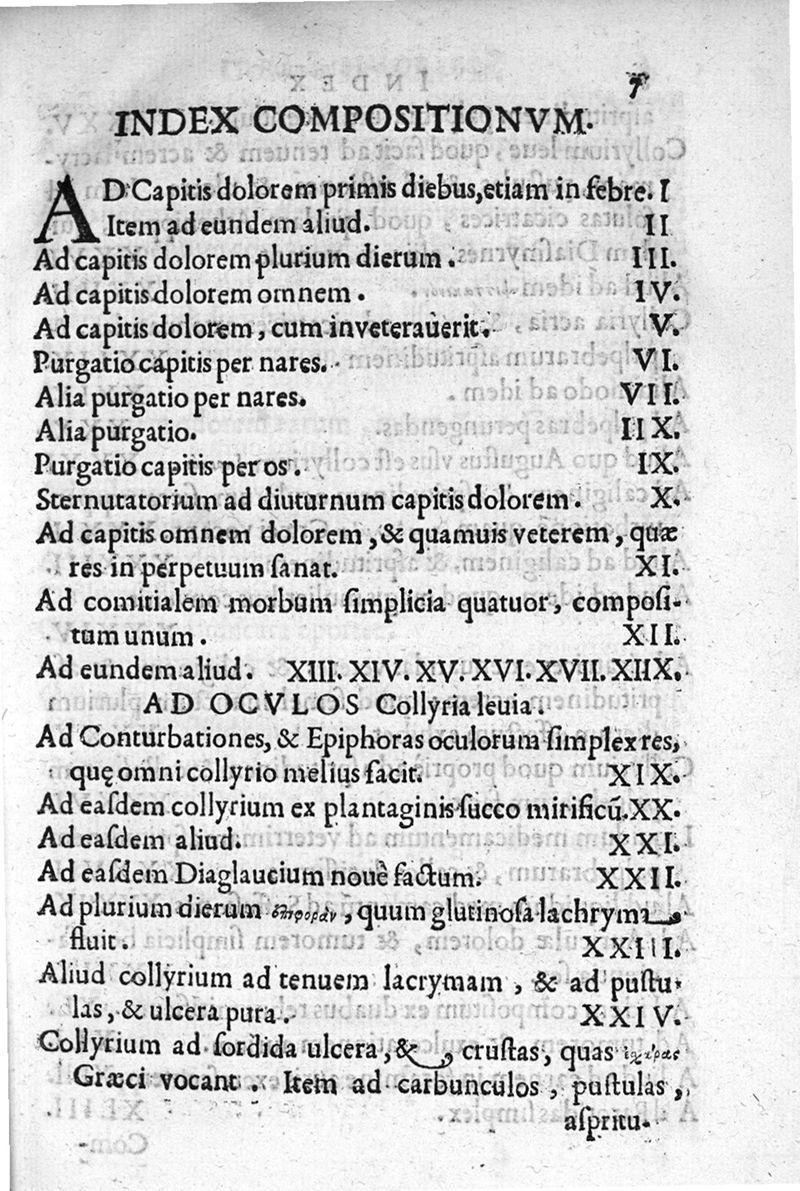 7
INDEX COMPOSITIONVM.
AD Capitis dolorem primis diebus, etiam in febre. I
Item ad eundem aliud. II
Ad capitis dolorem plurium dierum. III.
Ad capitis dolorem omnem. IV.
Ad capitis dolorem, cum inveterauerit. V.
Purgatio capitis per nares. VI.
Alia purgatio per nares. VII.
Alia purgatio. IIX.
Purgatio capitis per os. IX.
Sternutatorium ad diuturnum capitis dolorem. X.
Ad capitis omnem dolorem, & quamuis veterem, quæ
res in perpetuum ſanat. XI.
Ad comitialem morbum ſimplicia quatuor, compoſi-
tum unum. XII.
Ad eundem aliud. XIII. XIV. XV. XVI. XVII. XIIX.
AD OCVLOS Collyria leuia.
Ad Conturbationes, & Epiphoras oculorum ſimplex res,
quę omni collyrio melius facit. XIX.
Ad eaſdem collyrium ex plantaginis ſucco mirificũ. XX.
Ad eaſdem aliud. XXI.
Ad eaſdem Diaglaucium nouè factum. XXII.
Ad plurium dierum ἐπιφορὰν, quum glutinoſa lachryma
fluit. XXIII.
Aliud collyrium ad tenuem lacrymam, & ad puſtu-
las, & ulcera pura. XXIV.
Collyrium ad ſordida ulcera, &, cruſtas, quas
Græci vocant. Item ad carbunculos, puſtulas,
aſpritu-